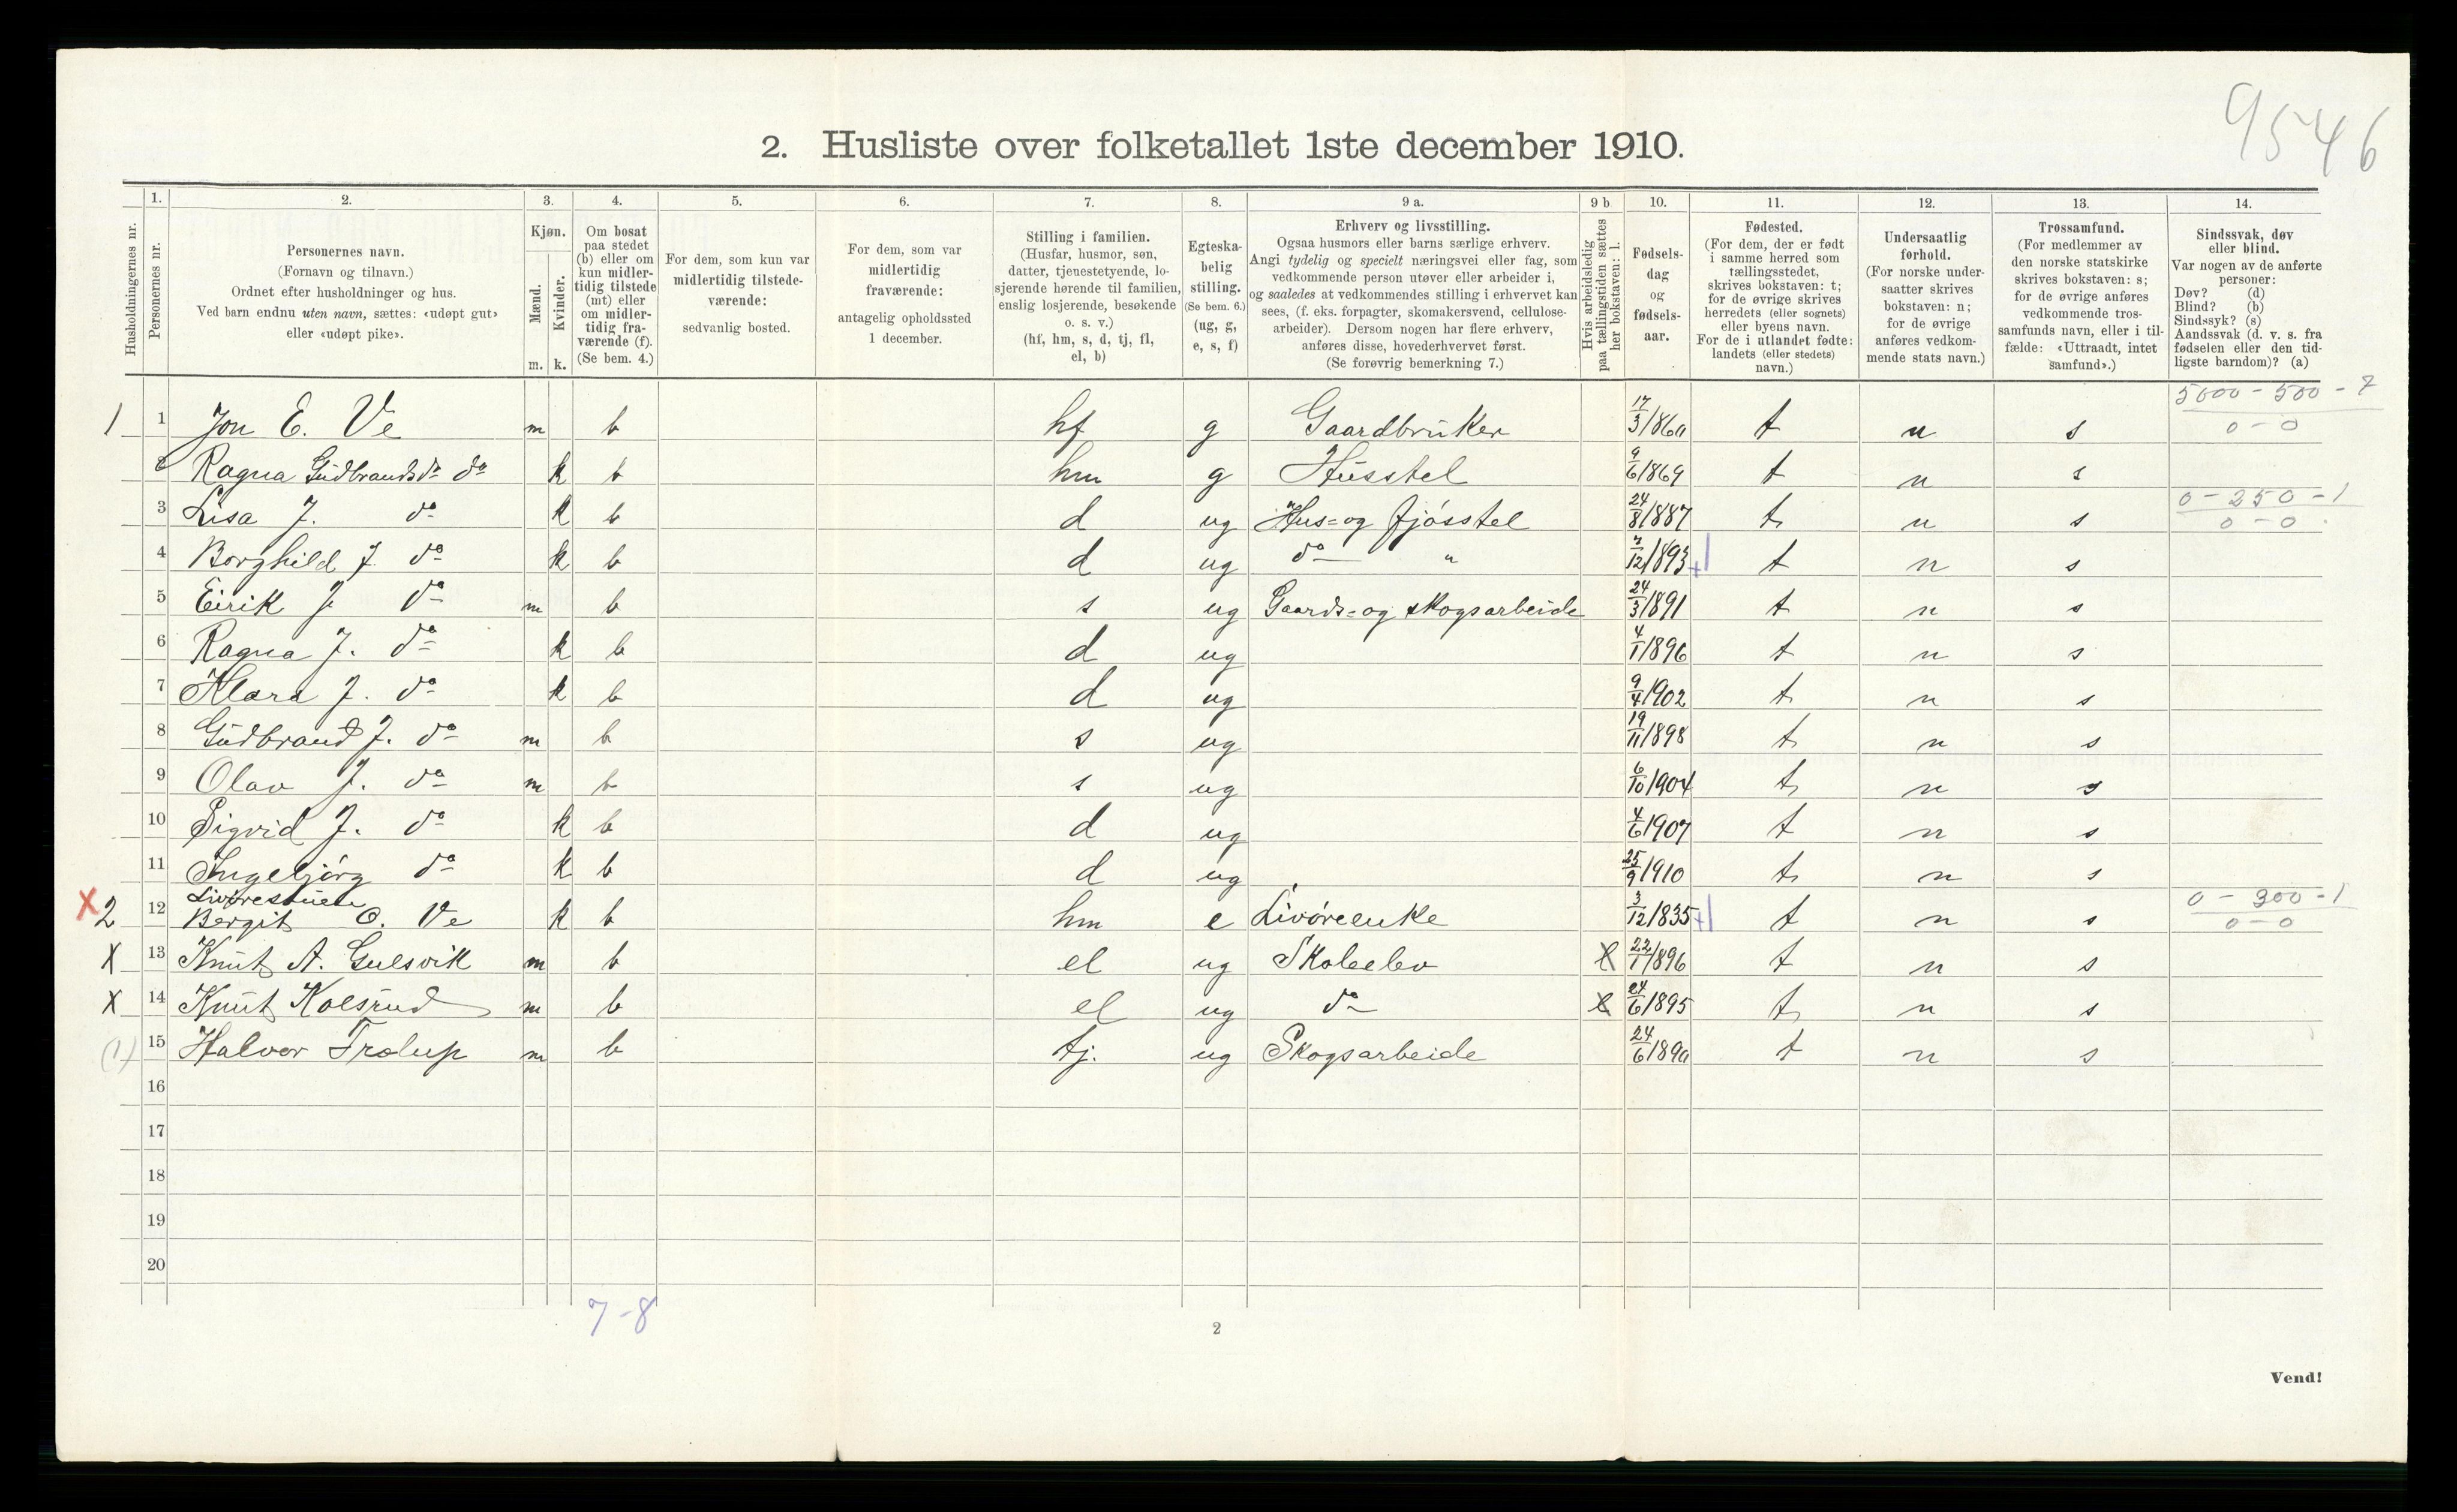 9546
2. Husliste over folketallet 1ste december 1910.
Husholdningernes nr.
1.
Personernes nr.
2.
Personernes navn.
(Fornavn og tilnavn.)
Ordnet efter husholdninger og hus.
Ved barn endnu uten navn, sættes: «udøpt gut»
eller «udøpt pike».
3.
Kjøn.
Mænd.
Kvinder.
m. k.
4.
Om bosat
paa stedet
(b) eller om
kun midler-
tidig tilstede
(mt) eller
om midler-
tidig fra-
værende (f).
(Se bem. 4.)
5.
For dem, som kun var
midlertidig tilstede-
værende:
sedvanlig bosted.
6.
For dem, som var
midlertidig
fraværende:
antagelig opholdssted
1 december.
7.
Stilling i familien.
(Husfar, husmor, søn,
datter, tjenestetyende, lo-
sjerende hørende til familien,
enslig losjerende, besøkende
o. s. v.)
(hf, hm, s, d, tj, fl,
el, b)
8.
Egteska-
belig
stilling.
(Se bem. 6.)
(ug, g,
e, s, f)
9 a.
Erhverv og livsstilling.
Ogsaa husmors eller barns særlige erhverv.
Angi tydelig og specielt næringsvei eller fag, som
vedkommende person utøver eller arbeider i,
og saaledes at vedkommendes stilling i erhvervet kan
sees, (f. eks. forpagter, skomakersvend, cellulose-
arbeider). Dersom nogen har flere erhverv,
anføres disse, hovederhvervet først.
(Se forøvrig bemerkning 7.)
9 b
Hvis arbeidsledig
paa tællingstiden sættes
her bokstaven: l.
10.
Fødsels-
dag
og
fødsels-
aar.
11.
Fødested.
(For dem, der er født
i samme herred som
tællingsstedet,
skrives bokstaven: t;
for de øvrige skrives
herredets (eller sognets)
eller byens navn.
For de i utlandet fødte:
landets (eller stedets)
navn.)
12.
Undersaatlig
forhold.
(For norske under-
saatter skrives
bokstaven: n;
for de øvrige
anføres vedkom-
mende stats navn.)
13.
Trossamfund.
(For medlemmer av
den norske statskirke
skrives bokstaven: s;
for de øvrige anføres
vedkommende tros-
samfunds navn, eller i til-
fælde: «Uttraadt, intet
samfund».)
14.
Sindssvak, døv
eller blind.
Var nogen av de anførte
personer:
Døv? (d)
Blind? (b)
Sindssyk? (s)
Aandssvak (d. v. s. fra
fødselen eller den tid-
ligste barndom)? (a)
5000 - 500 - 7
1 1 Jon E. Ve m b hf g Gaardbruker 17/3 1860 t n s 0-0
2 Ragna Gudbrandsdr do k b hm g Husstel 9/6 1869 t n s
0 - 250 - 1
3 Lisa J. do k b d ug Hus= og fjósstel 24/8 1887 t n s 0-0
4 Borghild J. do k b d ug do " 7/12 1893 t n s
5 Eirik J do m b s ug Gaards= og skogsarbeide 24/3 1891 t n s
6 Ragna J. do k b d ug 4/1 1896 t n s
7 Klara J. do k b d ug 9/4 1902 t n s
8 Gudbrand J. do m b s ug 19/11 1898 t n s
9 Olav J. do m b s ug 6/10 1904 t n s
10 Sigrid J. do k b d ug 4/6 1907 t n s
11 Ingebjórg do k b d ug 25/9 1910 t n s
0 - 300 - 1
X 2 12 Bergit O. Ve k b hm e Livóreenke 3/12 1835 t n s 0-0
X 13 Knut A. Gulsvik m b el ug Skoleelev l 22/1 1896 t n s
X 14 Knut Kolsrud m b el ug do l 24/6 1895 t n s
(1) 15 Halvor Trolup m b tj. ug Skogsarbeide 24/6 1890 t n s
16
17
18
19
20
7-8
2
Vend!